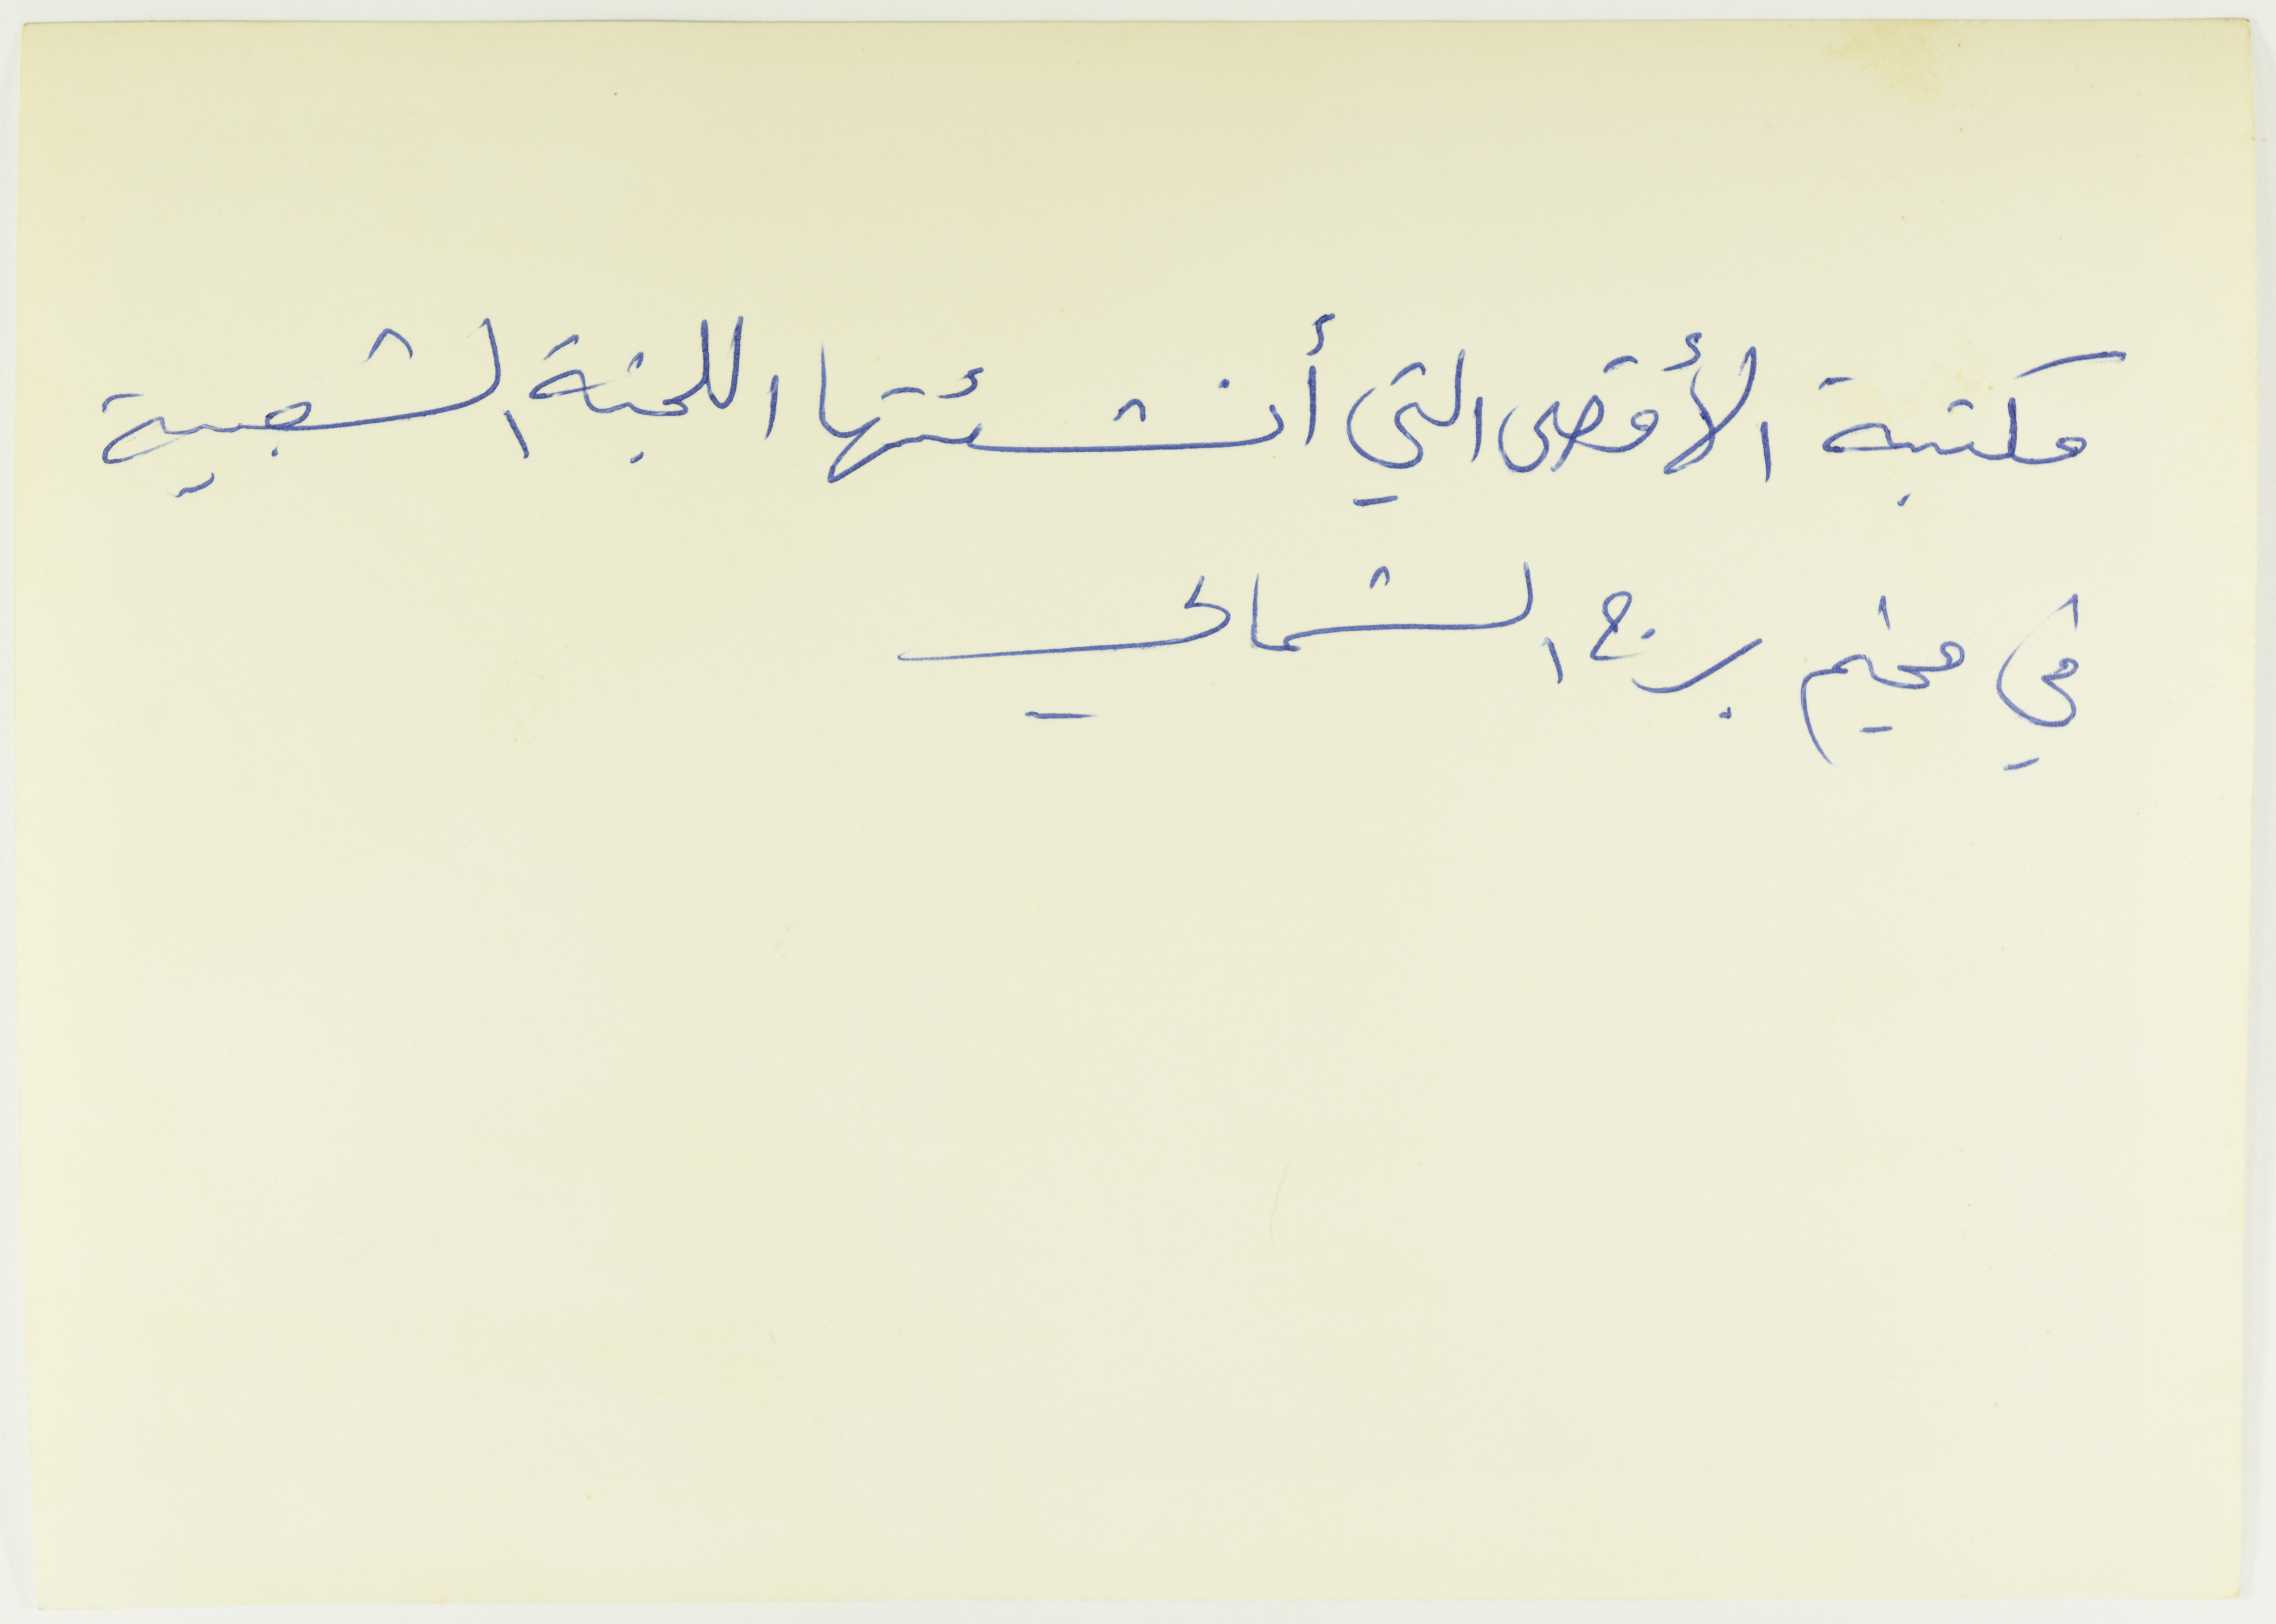 مكتبة الأقصى التي أنشئتها اللجنة الشعبية
في مخيم برج الشمالي